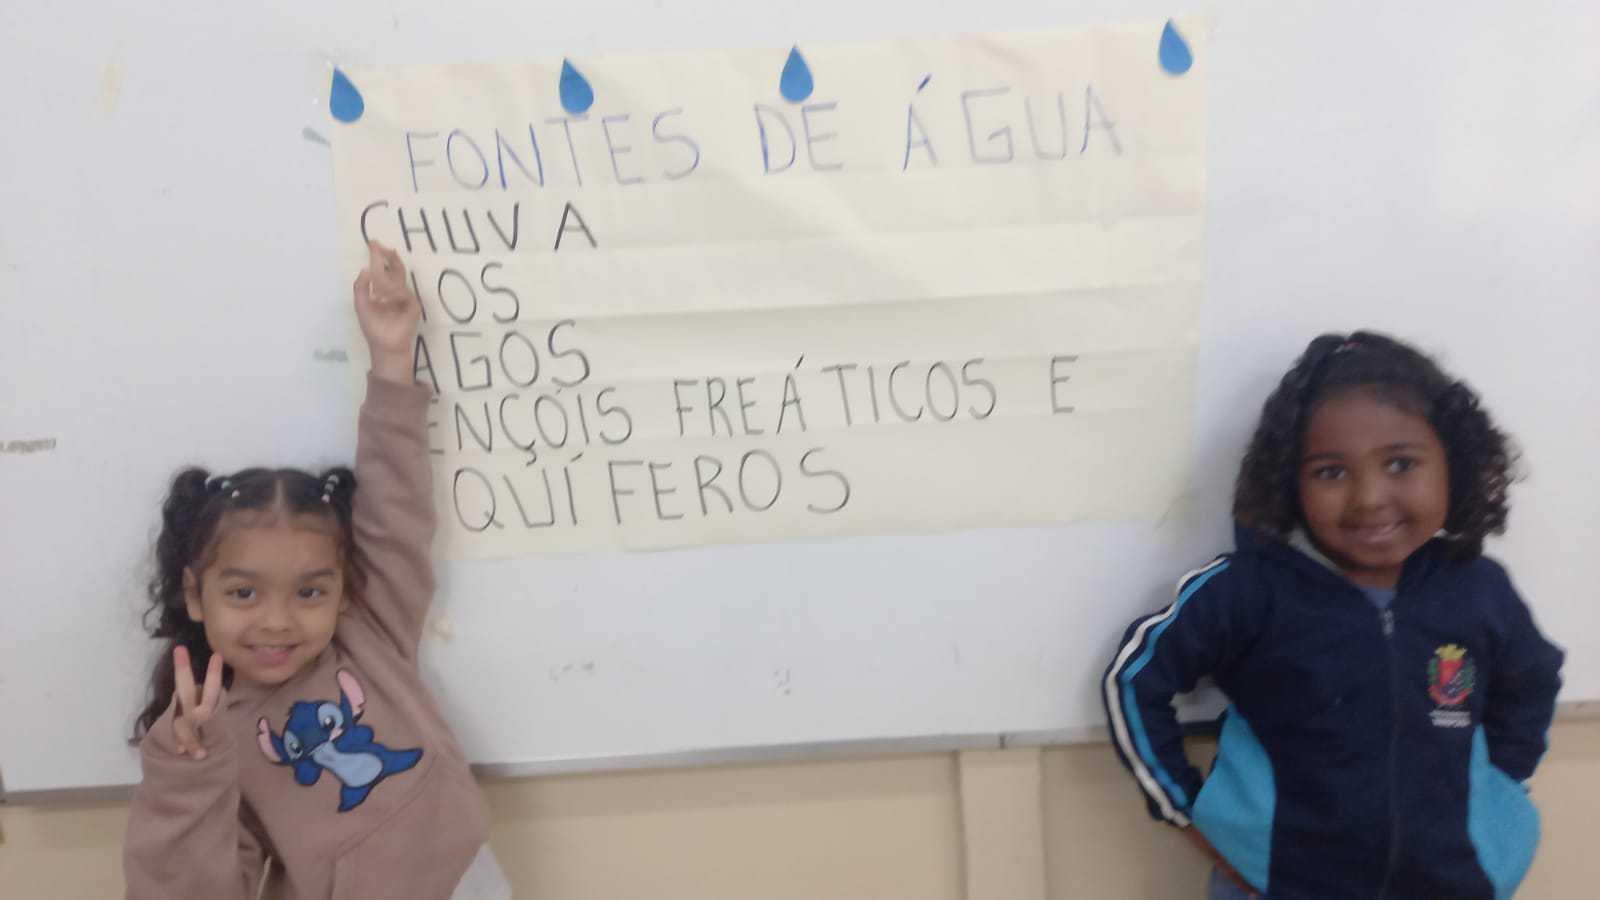 FONTES DE ÁGUA
CHUVA
IOS
AGOS
ENÇÓIS FREÁTICOS E
QUÍFEROS